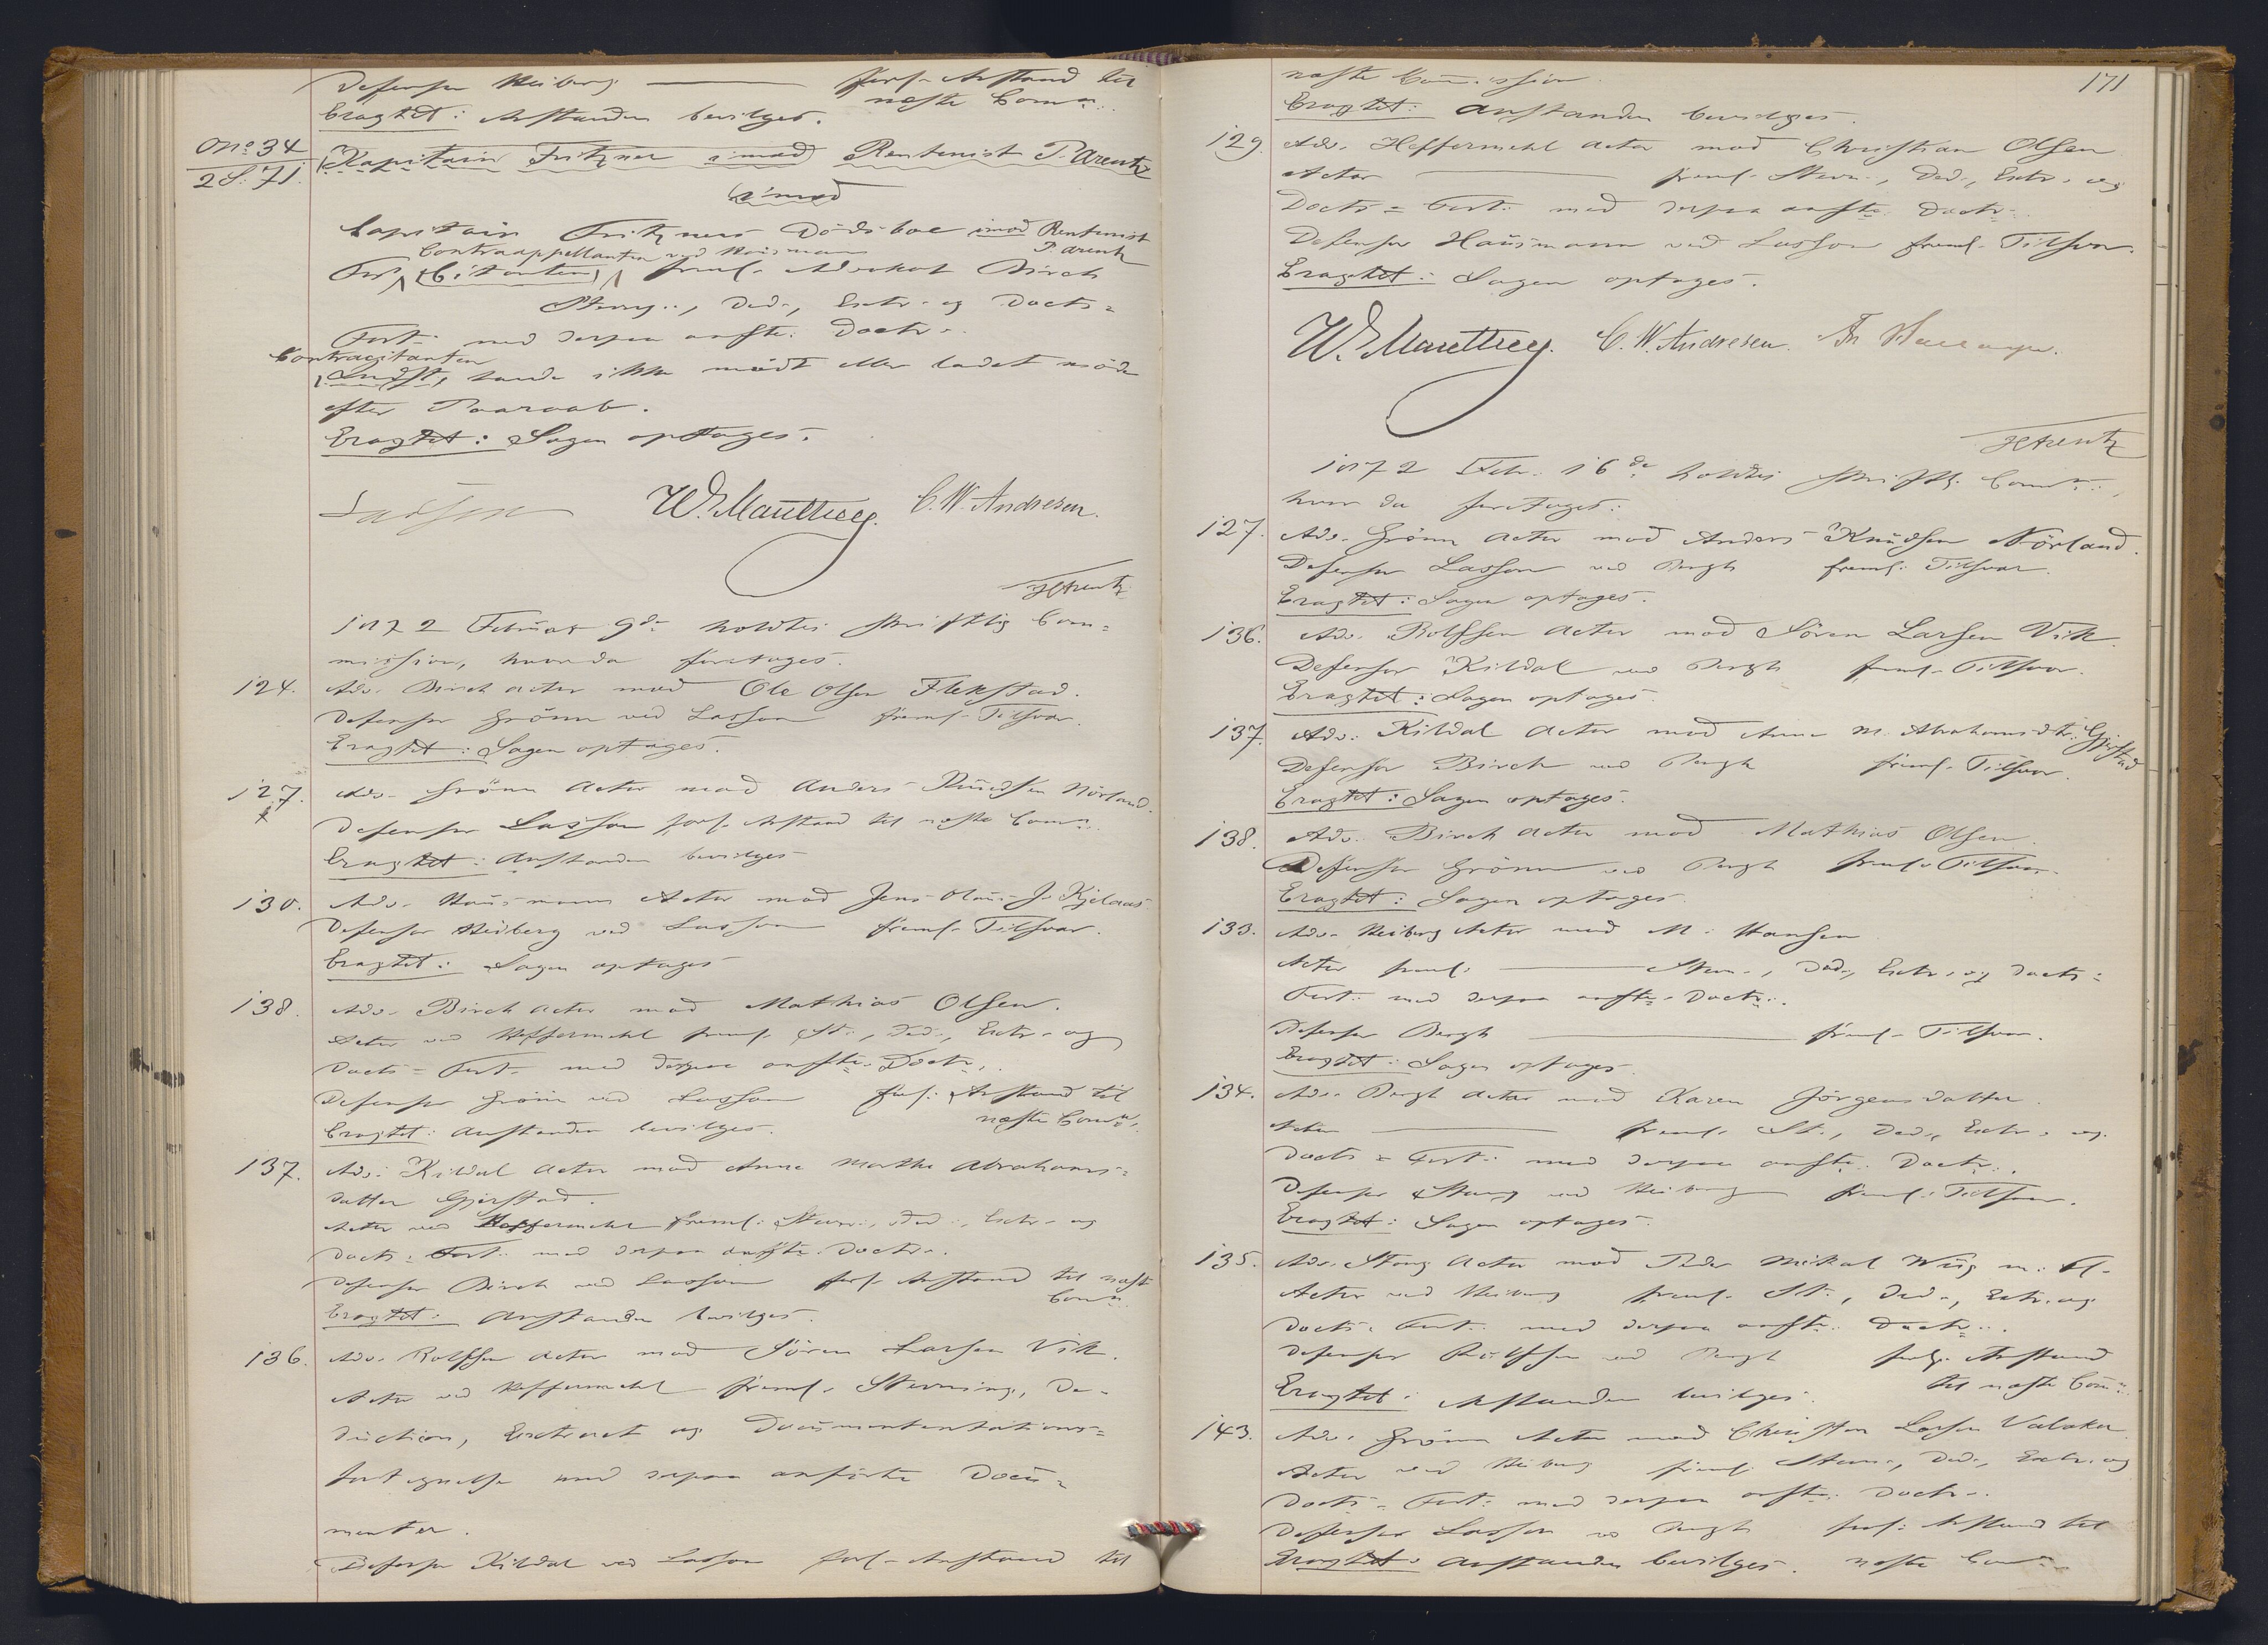 Defensor Heiberg ——— forl. Anstand til
næste Comn.
Eragtet: Anstanden bevilges.
No 34
2 S. 71.
Kapitain Fritzner imod Rentenist P. Arentz
imod
Capitain Fritzners Dödsboe imod Rentenist
P. Arentz
Contraappellanten ved Hausmann
For Citanten freml. Advokat Birch
Stevng., Ded., Extr. og Docts=
Fort. med derpaa anfte. Doctr.
Contracitanten
Indst. havde ikke mødt eller ladet möde
efter Paaraab.
Eragtet: Sagen optages.
Lasson W. Manthey. C. W. Andresen.
H Arentz
1872 Februar 9de holdtes skriftlig Com=
mission, hvor da foretoges.
124.
Adv. Birch Actor mod Ole Olsen Flekstad.
Defensor Grönn ved Lasson freml. Tilsvar.
Eragtet: Sagen optages.
127.
Adv. Grönn Actor mod Anders Knudsen Nörland.
Defensor Lasson forl. Anstand til næste Comn.
Eragtet: Anstanden bevilges
130.
Adv. Hausmann Actor mod Jens Olaus J. Kjelaas
Defensor Heiberg ved Lasson freml. Tilsvar.
Eragtet: Sagen optages
138.
Adv. Birch Actor mod Mathias Olsen.
Actor ved Heffermehl freml. St., Ded., Extr. og
Docts= Fort. med derpaa anfte. Doctr.
Defensor Grönn ved Lasson forl. Anstand til
næste Comn.
Eragtet: Anstanden bevilges.
137.
Adv. Kildal Actor mod Anne Marthe Abrahams=
datter Gjerstad.
Actor ved Heffermehl freml. Stevn., Ded., Extr. og
Docts= Fort. med derpaa anfte. Doctr.
Defensor Birch ved Lasson forl. Anstand til næste
Comn.
Eragtet: Anstanden bevilges.
136.
Adv. Rolfsen Actor mod Sören Larsen Vik.
Actor ved Heffermehl freml. Stevning, De=
duction, Extract og Documentations=
fortegnelse med derpaa anførte Docu=
menter.
Defensor Kildal ved Lasson forl. Anstand til
171
næste Commission.
Eragtet: Anstanden bevilges.
129.
Adv. Heffermehl Actor mod Christian Olsen
Actor ——— freml. Stevn., Ded., Extr. og
Docts= Fort. med derpaa anfte. Doctr.
Defensor Hausmann ved Lasson freml. Tilsvar.
Eragtet: Sagen optages.
W. Manthey. C. W. Andresen.
H Arentz
1872 Febr. 16de holdtes skriftl. Comn.,
hvor da foretoges:
127.
Adv. Grönn Actor mod Anders Knudsen Nörland.
Defensor Lasson ved Bergh freml. Tilsvar.
Eragtet: Sagen optages.
136.
Adv. Rolfsen Actor mod Sören Larsen Vik.
Defensor Kildal ved Bergh freml. Tilsvar.
Eragtet: Sagen optages.
137.
Adv. Kildal Actor mod Anne M. Abrahamsdtr. Gjerstad
Defensor Birch ved Bergh freml. Tilsvar.
Eragtet: Sagen optages.
138.
Adv. Birch Actor mod Mathias Olsen
Defensor Grönn ved Bergh freml. Tilsvar.
Eragtet: Sagen optages.
133.
Adv. Heiberg Actor mod M. Hansen
Actor freml. ——— Stevn., Ded., Extr. og Docts=
Fort. med derpaa anfte. Doctr.
Defensor Bergh ——— freml. Tilsvar.
Eragtet: Sagen optages.
134.
Adv. Bergh Actor mod Karen Jörgensdatter.
Actor ——— freml. St., Ded., Extr. og
Docts= Fort. med derpaa anfte. Doctr.
Defensor Stang ved Heiberg freml. Tilsvar.
Eragtet: Sagen optages.
135.
Adv. Stang Actor mod Peder Mikal Wiig m. Fl.
Actor ved Heiberg freml. St., Ded., Extr. og
Docts= Fort. med derpaa anfte. Doctr.
Defensor Rolfsen ved Bergh forl. Anstand
til næste Comn.
Eragtet: Anstanden bevilges.
143.
Adv. Grönn Actor mod Christen Larsen Valaker
Actor ved Heiberg freml. Stevn., Ded., Extr. og
Docts= Fort. med derpaa anfte. Doctr.
Defensor Lasson ved Bergh forl. Anstand til
Eragtet: Anstanden bevilges. næste Comn.